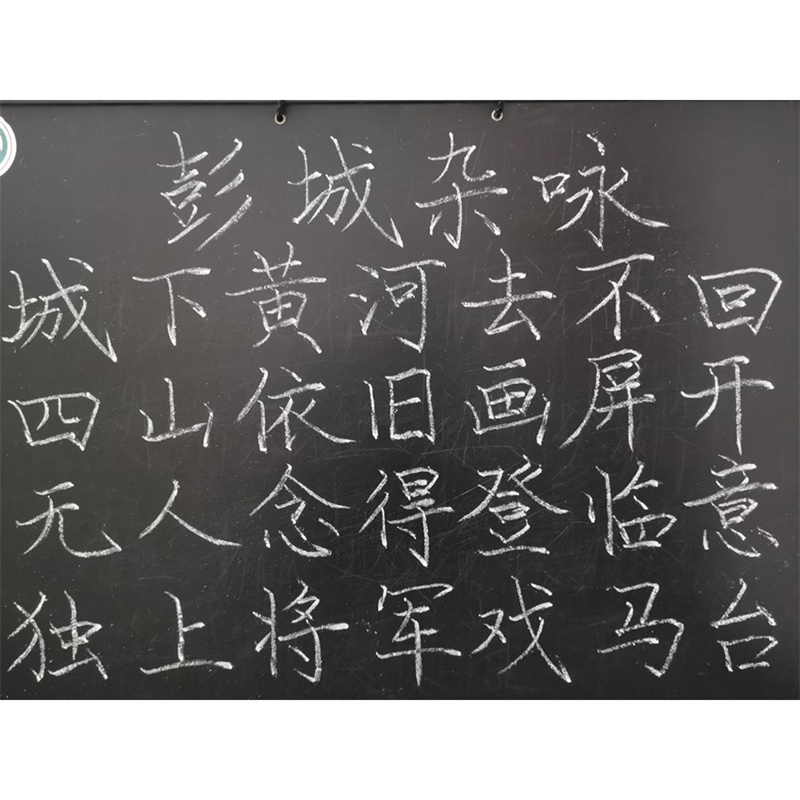 彭城杂咏
城下黄河去不回
四山依旧画屏开
无人念得登临意
独上将军戏马台